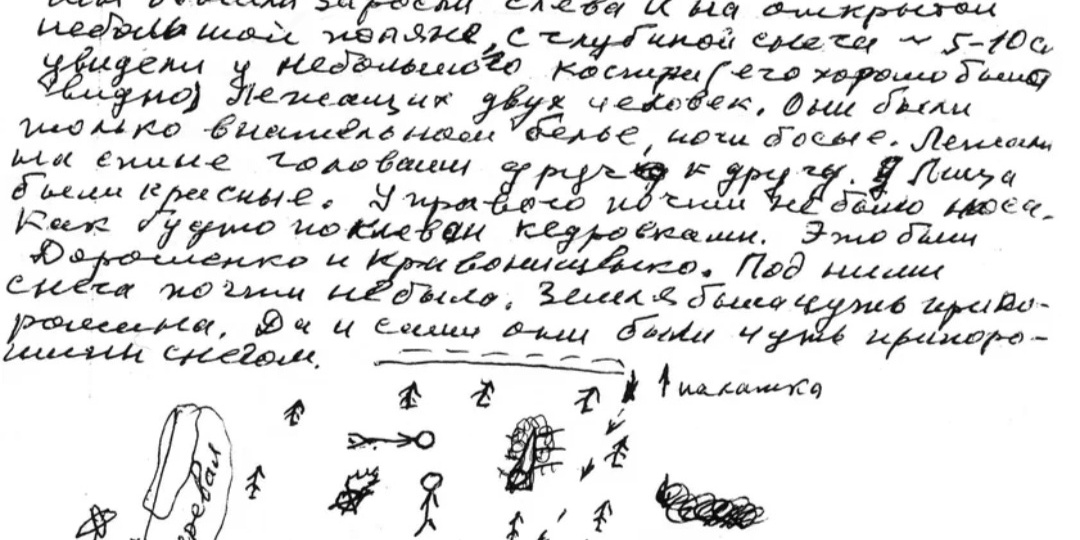 заросли слева и на открытой
небольшой поляне, с глубиной снега ~ 5-10с
увидели у небольшого костра (его хорошо было
видно) лежащих двух человек. Они были
только в нательном белье, ноги босые. Лежали
на спине головами друг к другу. Лица
были красные. У правого почти не было носа.
Как будто поклеван кедровками. Это были
Дорошенко и Кривонищенко. Под ними
снега почти не было. Земля была чуть припо-
рошена. Да и сами они были чуть припоро-
шены снегом.
палатка